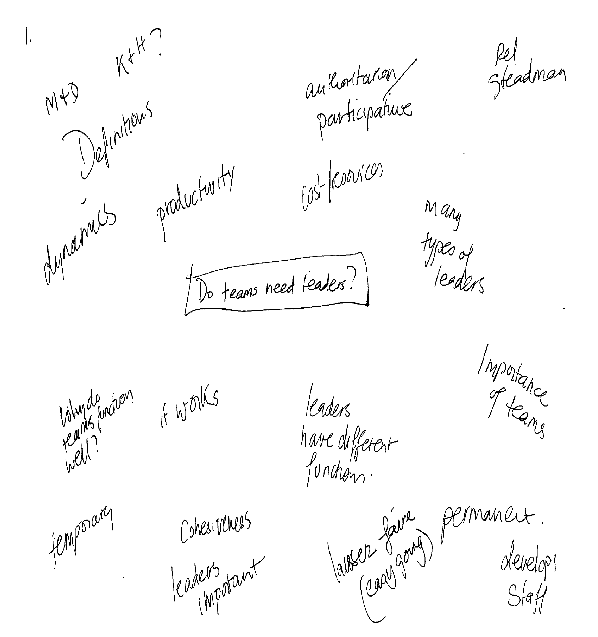 1.
M+D
K+H?
Definitions
authoritarian/
participative
Ref
Steadman
dynamics
productivity
cost/services
many
types of
leaders
Do teams need leaders?
Why do
teams function
well?
it works
leaders
have different
functions.
Importance
of teams
temporary
Cohesiveness
leaders
important
laissez faire
(easy going)
permanent.
develop
Staff